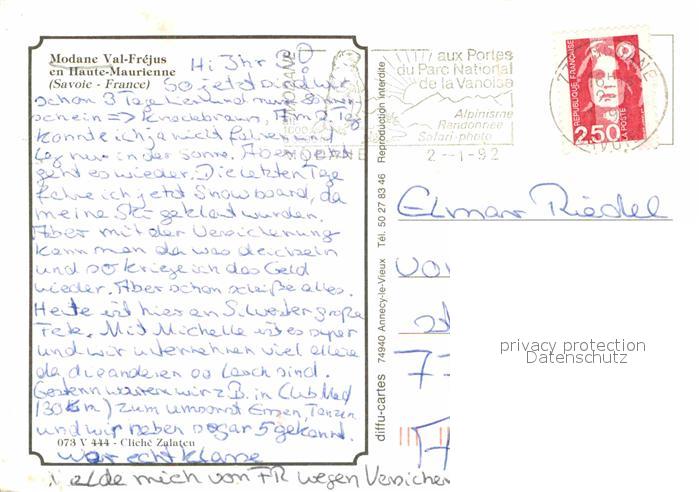 Modane Val-Fréjus
en Haute-Maurienne
(Savoie - France)
Hi Ihr 3!
So jetzt sind wir
schon 3 Tage hier und nur Sonnen
schein => knackebraun. Am 2. Tag
konnte ich ja nicht fahren und
lag nur in der Sonne. Aber jetzt
geht es wieder. Die letzten Tage
fahre ich jetzt Snowboard, da
meine Ski geklaut wurden.
Aber mit der Versicherung
kann man da was deichseln
und so kriege ich das Geld
wieder. Aber schon scheiße alles.
Heute ist hier an Silvester große
Fete. Mit Michelle ist es super
und wir unternehmen viel alleine
da die anderen so lasch sind.
Gestern waren wir z.B. in Club Med
(30 km) zum umsonst Essen, Tanzen
und wir haben sogar 5 gekannt.
073 V 444 - Cliché Zalateu
War echt klasse
melde mich von FR wegen Versicher
diffu-cartes 74940 Annecy-le-Vieux Tél. 50 27 83 46 Reproduction Interdite
MODANE
aux Portes
du Parc National
de la Vanoise
Alpinisme
Randonnée
Safari-photo
2 -1-92
REPUBLIQUE FRANÇAISE
2,50
LA POSTE
Elmar Riedel
privacy protection
Datenschutz